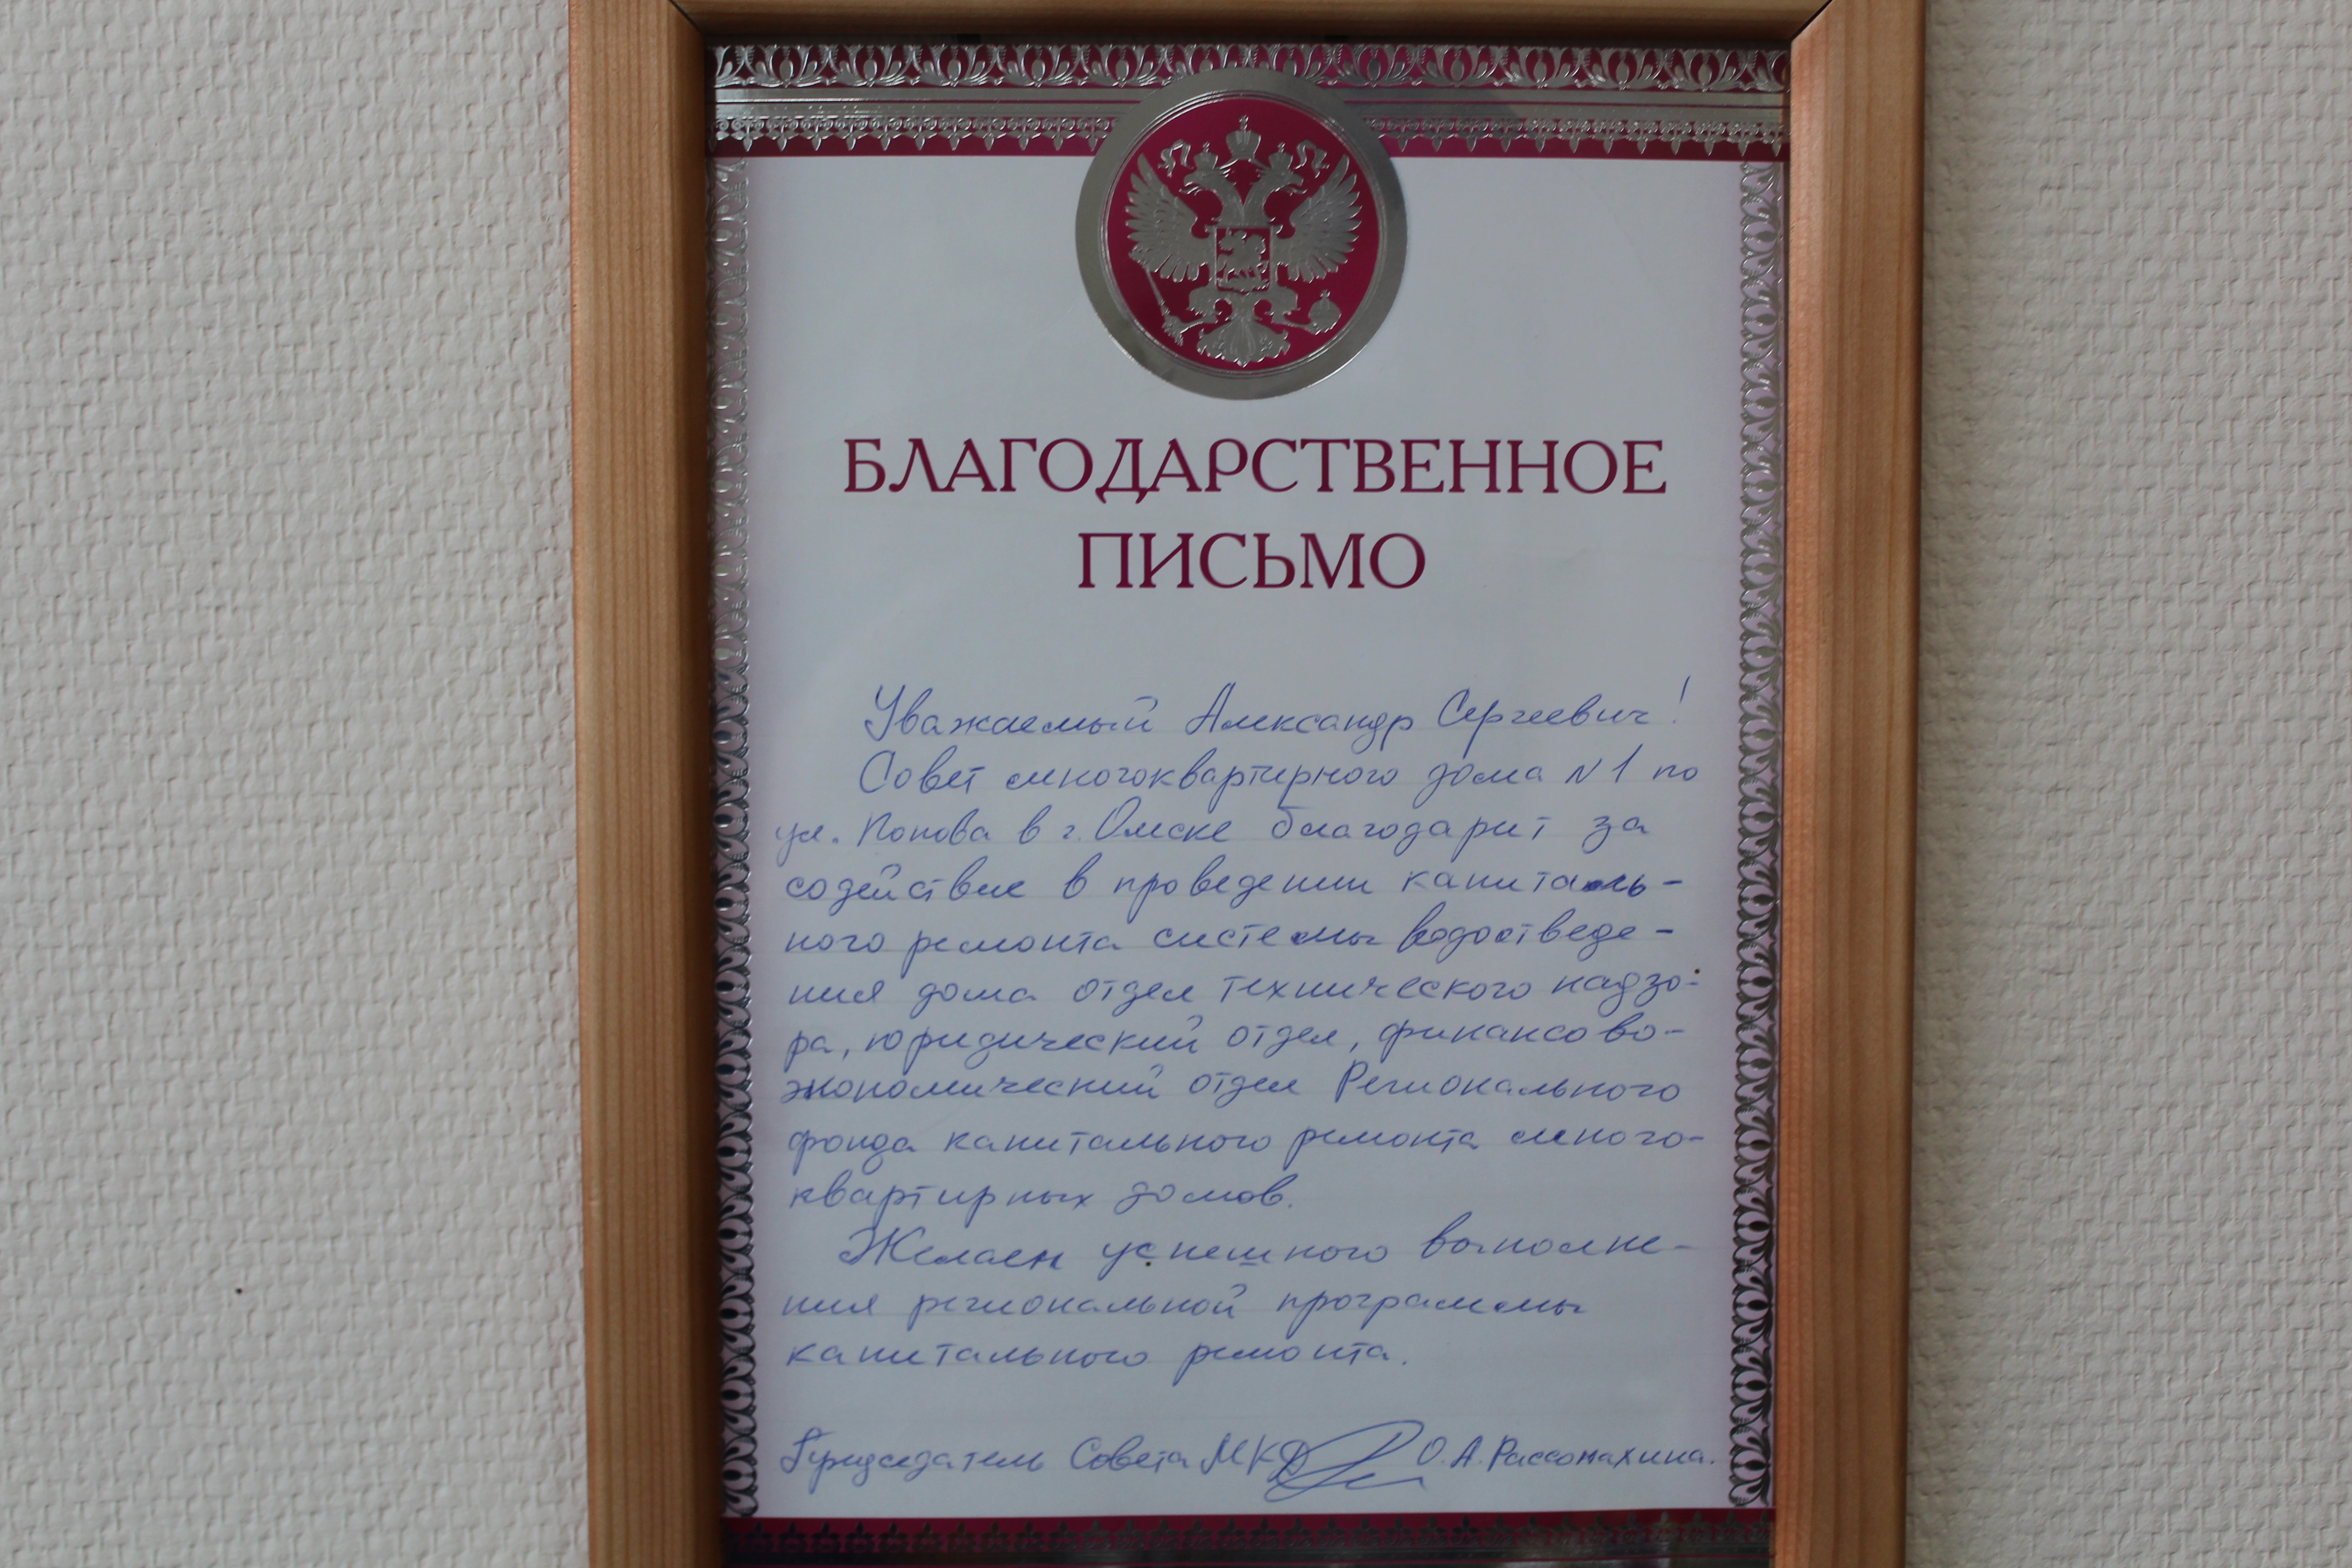 БЛАГОДАРСТВЕННОЕ
ПИСЬМО
Уважаемый Александр Сергеевич!
Совет многоквартирного дома N1 по
ул. Попова в г. Омске благодарит за
содействие в проведении капиталь-
ного ремонта системы водоотведе-
ния дома отдел технического надзо-
ра, юридический отдел, финансово-
экономический отдел Регионального
фонда капитального ремонта много-
квартирных домов.
Желаем успешного выполне-
ния региональной программы
капитального ремонта.
Председатель Совета МКД О.А.Рассомахина.